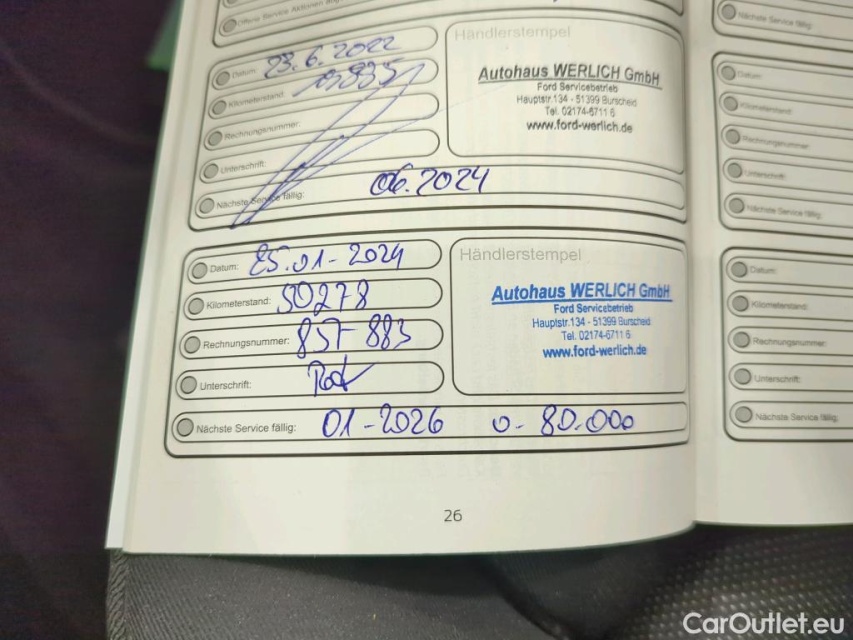 Offene Service Aktionen
Datum: 23.6.2022
Kilometerstand:
Rechnungsnummer:
Unterschrift:
Nächste Service fällig: 06.2024
Händlerstempel
Autohaus WERLICH GmbH
Ford Servicebetrieb
Hauptstr.134 - 51399 Burscheid
Tel. 02174-6711 6
www.ford-werlich.de
Datum: 25.01-2024
Kilometerstand: 50278
Rechnungsnummer: 857-883
Unterschrift:
Nächste Service fällig: 01-2026 o- 80.000
Händlerstempel
Autohaus WERLICH GmbH
Ford Servicebetrieb
Hauptstr.134 - 51399 Burscheid
Tel. 02174-6711 6
www.ford-werlich.de
26
Nächste Service fällig:
Datum:
Kilometerstand:
Rechnungsnummer:
Unterschrift:
Nächste Service fällig:
Datum:
Kilometerstand:
Rechnungsnummer:
Unterschrift:
Nächste Service fällig:
CarOutlet.eu